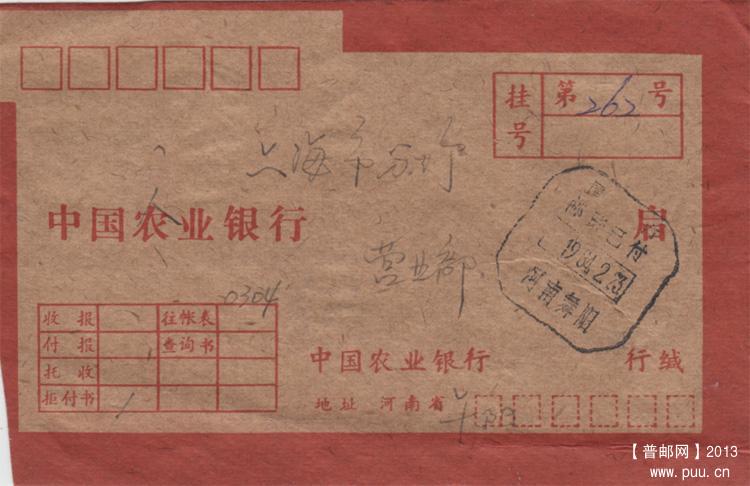 挂号 第262号
上海市分行
中国农业银行 启
营业部
国
邮资已付
1984.2.23
河南舞阳
0304
收报 往帐表
付报 查询书
托收
拒付书 1
中国农业银行 行缄
地址 河南省
【普邮网】2013
www.puu.cn